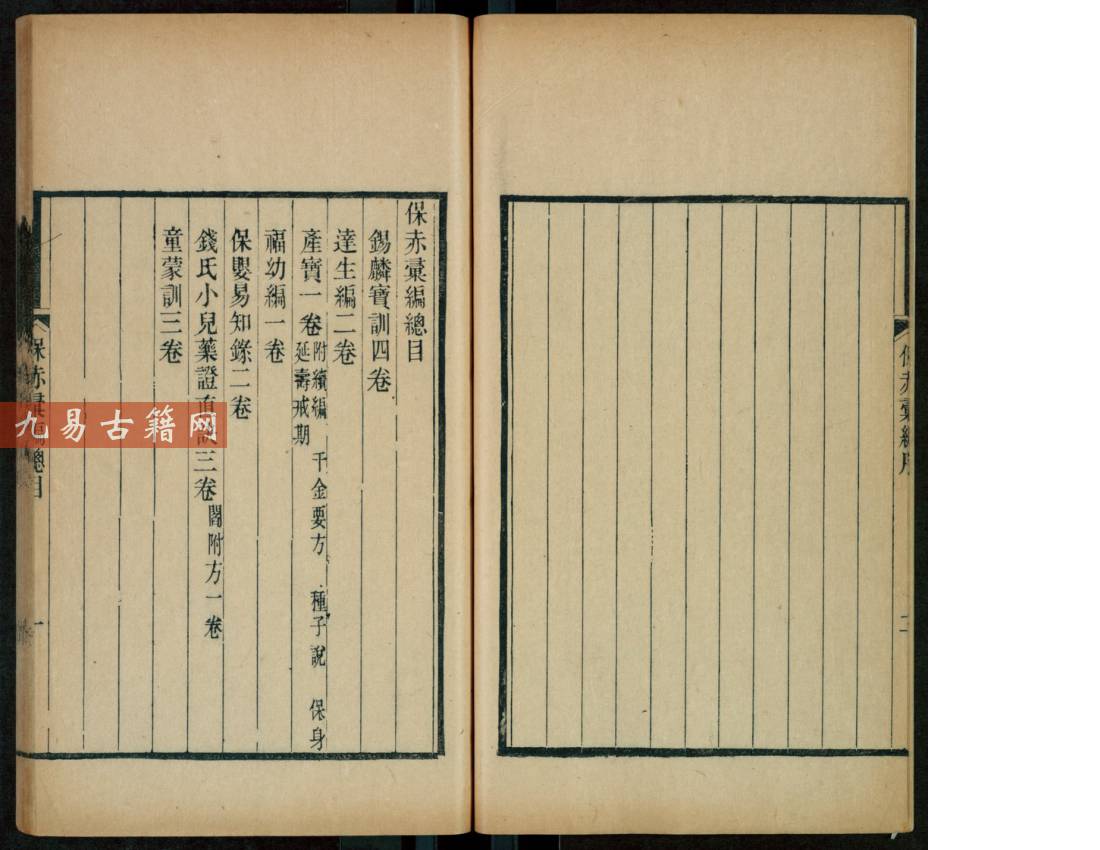 保赤彙編序
二
保赤彙編總目
錫麟寶訓四卷
達生編二卷
產寶一卷附續編 千金要方 種子說 保身
延壽戒期
福幼編一卷
保嬰易知錄二卷
錢氏小兒藥證直訣三卷閻附方一卷
童蒙訓三卷
保赤彙編總目
一
九易古籍网